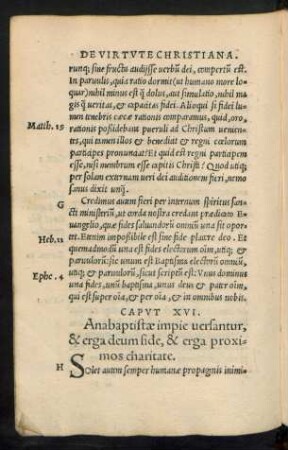 DE VIRTVTE CHRISTIANA.
runq; sine fructu audisse verbũ dei, compertũ est.
In paruulis, quia ratio dormit (ut humano more lo
quar) nihil minus est q̃ dolus, aut simulatio, nihil ma
gis q̃ ueritas, & capacitas fidei. Alioqui si fidei lu
men tenebris cæcæ rationis comparamus, quid, oro,
Matth. 19
rationis possidebant pueruli ad Christum uenien
tes, qui tamen illos & benedixit & regni cœlorum
participes pronunciat? Et quid est regni participem
esse, nisi membrum esse capitis Christi? Quod utiq;
per solam externam uerbi dei auditionem fieri, nemo
sanus dixit unq̃.
G
Credimus autem fieri per internum spiritus san
cti ministeriũ, ut corda nostra credant prædicato Eu
angelio, quæ fides saluandorũ omnium una sit opor
Heb. 11
tet. Etenim impossibile est sine fide placere deo. Et
quemadmodũ una est fides electorum oĩm, utiq; &
paruulorũ: sic unum est Baptisma electorũ omniũ,
Ephe. 4
utiq; & paruulorũ, sicut scriptũ est: Vnus dominus
una fides, unũ baptisma, unus deus & pater oĩm,
qui est super oĩa, & per oĩa, & in omnibus uobis.
CAPVT XVI.
Anabaptistæ impie uersantur,
& erga deum fide, & erga proxi
mos charitate.
H
Solet autem semper humanæ propaginis inimi-